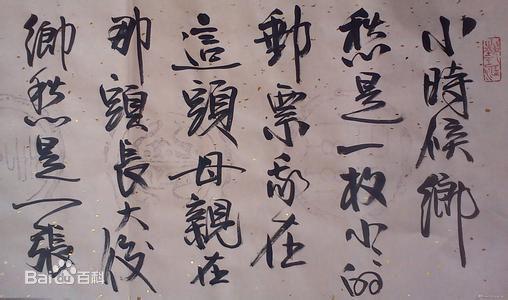 小時候鄉
愁是一枚小々的
郵票我在
這頭母親在
那頭長大後
鄉愁是一張
Bai度百科